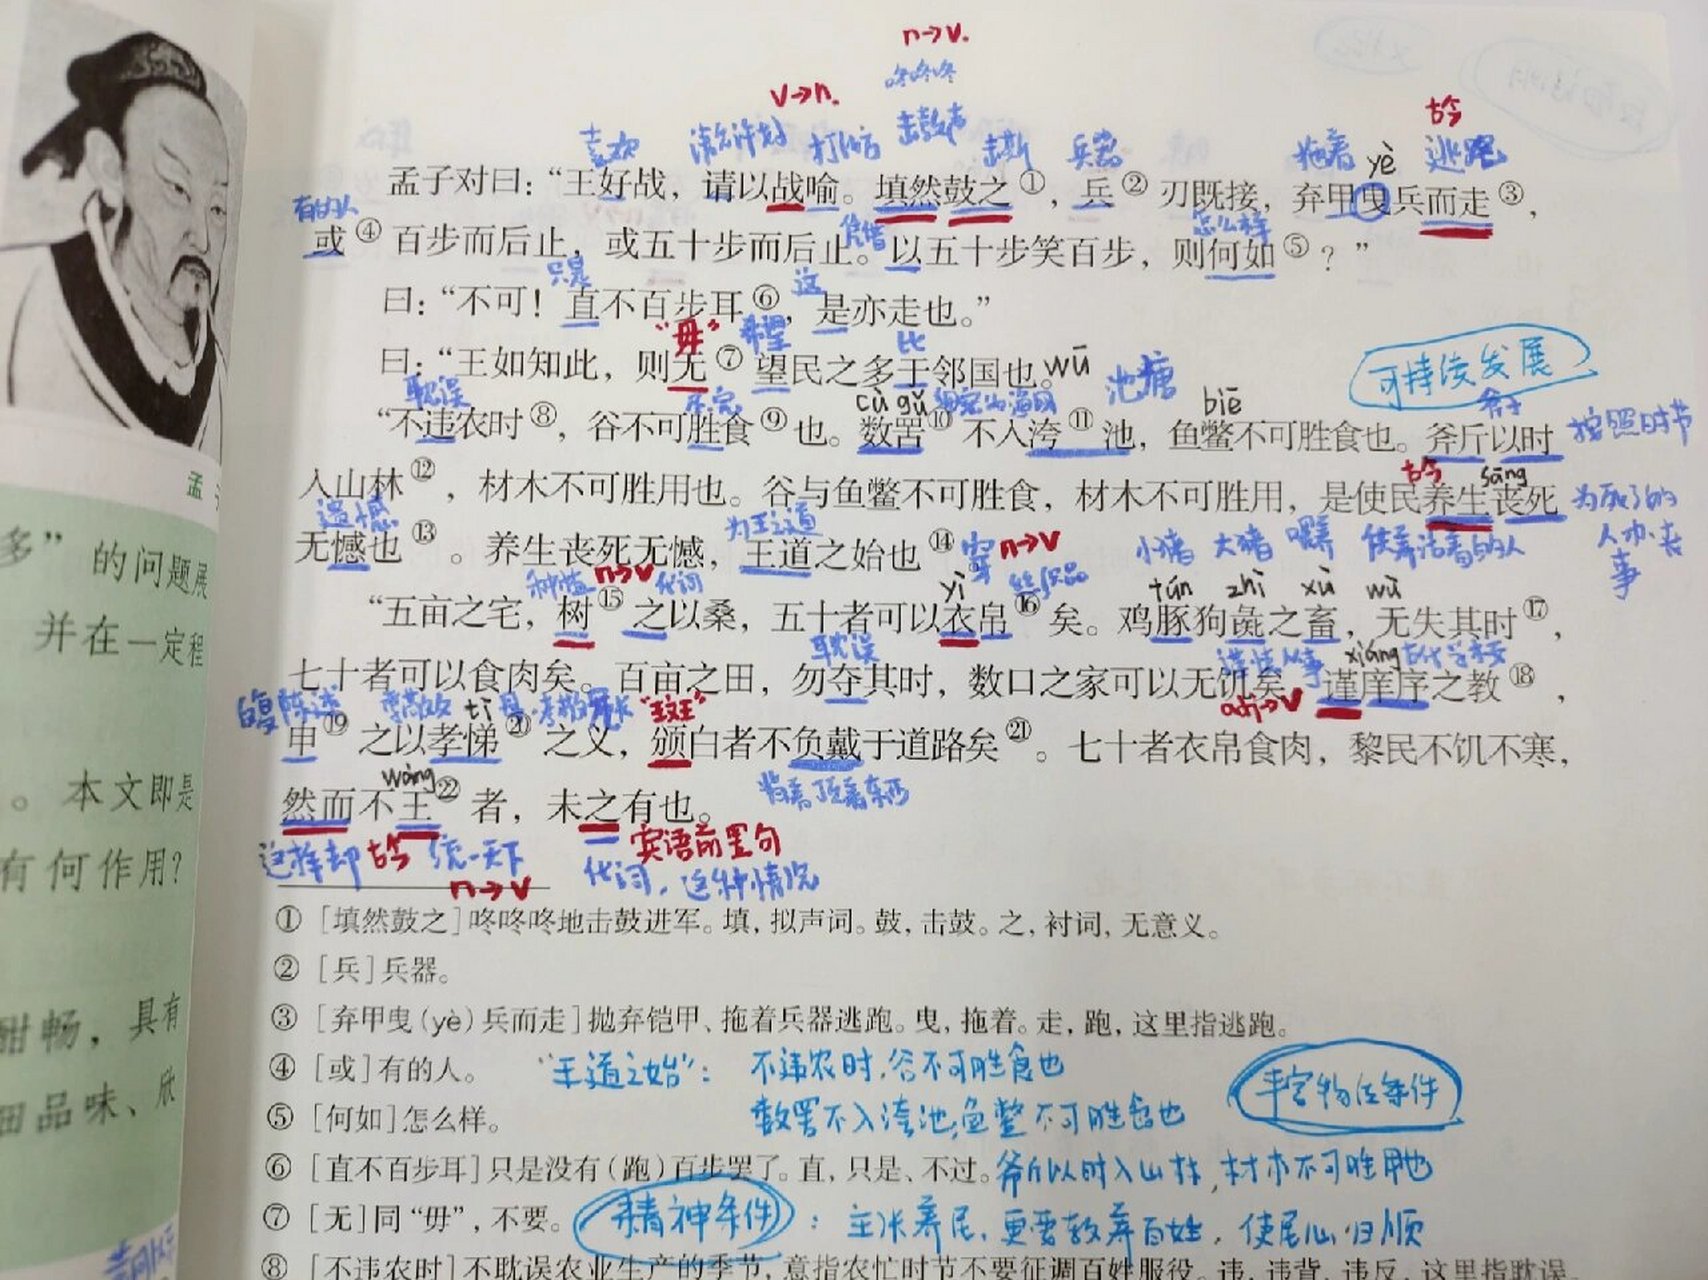 n→v.
咚咚咚
v→n.
古今
喜欢 请允许我 打比方 击鼓声 兵器 拖着 yè 逃跑
孟子对曰：“王好战，请以战喻。填然鼓之①，兵②刃既接，弃甲曳兵而走③，
有的人 凭借 怎么样
或④百步而后止，或五十步而后止。以五十步笑百步，则何如⑤？”
只是 这
曰：“不可！直不百步耳⑥，是亦走也。”
“毋” 希望 比
曰：“王如知此，则无⑦望民之多于邻国也。
可持续发展
耽误 cù gǔ wū 池塘 biē 按照时节
“不违农时⑧，谷不可胜食⑨也。数罟⑩不入洿⑪池，鱼鳖不可胜食也。斧斤以时
古今 sāng
入山林⑫，材木不可胜用也。谷与鱼鳖不可胜食，材木不可胜用，是使民养生丧死
为死了的人办丧事
遗憾 为王之道
无憾也⑬。养生丧死无憾，王道之始也⑭
穿 n→v 小猪 大猪 供养活着的人
种植 n→v 代词 yì 丝织品 tún zhì xù wú
“五亩之宅，树⑮之以桑，五十者可以衣帛⑯矣。鸡豚狗彘之畜，无失其时⑰，
耽误 xiáng 古代学校
七十者可以食肉矣。百亩之田，勿夺其时，数口之家可以无饥矣。谨庠序之教⑱，
adj→v
tì
申⑲之以孝悌⑳之义，颁白者不负戴于道路矣㉑。七十者衣帛食肉，黎民不饥不寒，
wàng 背着顶着东西
然而不王㉒者，未之有也。
这样却 古今 统一天下 宾语前置句
n→v 代词，这种情况
①［填然鼓之］咚咚咚地击鼓进军。填，拟声词。鼓，击鼓。之，衬词，无意义。
②［兵］兵器。
③［弃甲曳(yè)兵而走］抛弃铠甲、拖着兵器逃跑。曳，拖着。走，跑，这里指逃跑。
④［或］有的人。
“王道之始”： 不违农时，谷不可胜食也
丰富物质条件
⑤［何如］怎么样。
数罟不入洿池，鱼鳖不可胜食也
⑥［直不百步耳］只是没有（跑）百步罢了。直，只是、不过。
斧斤以时入山林，材木不可胜用也
⑦［无］同“毋”，不要。
精神条件：主张养民，更要教养百姓，使民心归顺
⑧［不违农时］不耽误农业生产的季节，意指农忙时节不要征调百姓服役。违，违背、违反，这里指耽误
孟
多”的问题展
并在一定程
。本文即是
有何作用？
酣畅，具有
细品味、欣